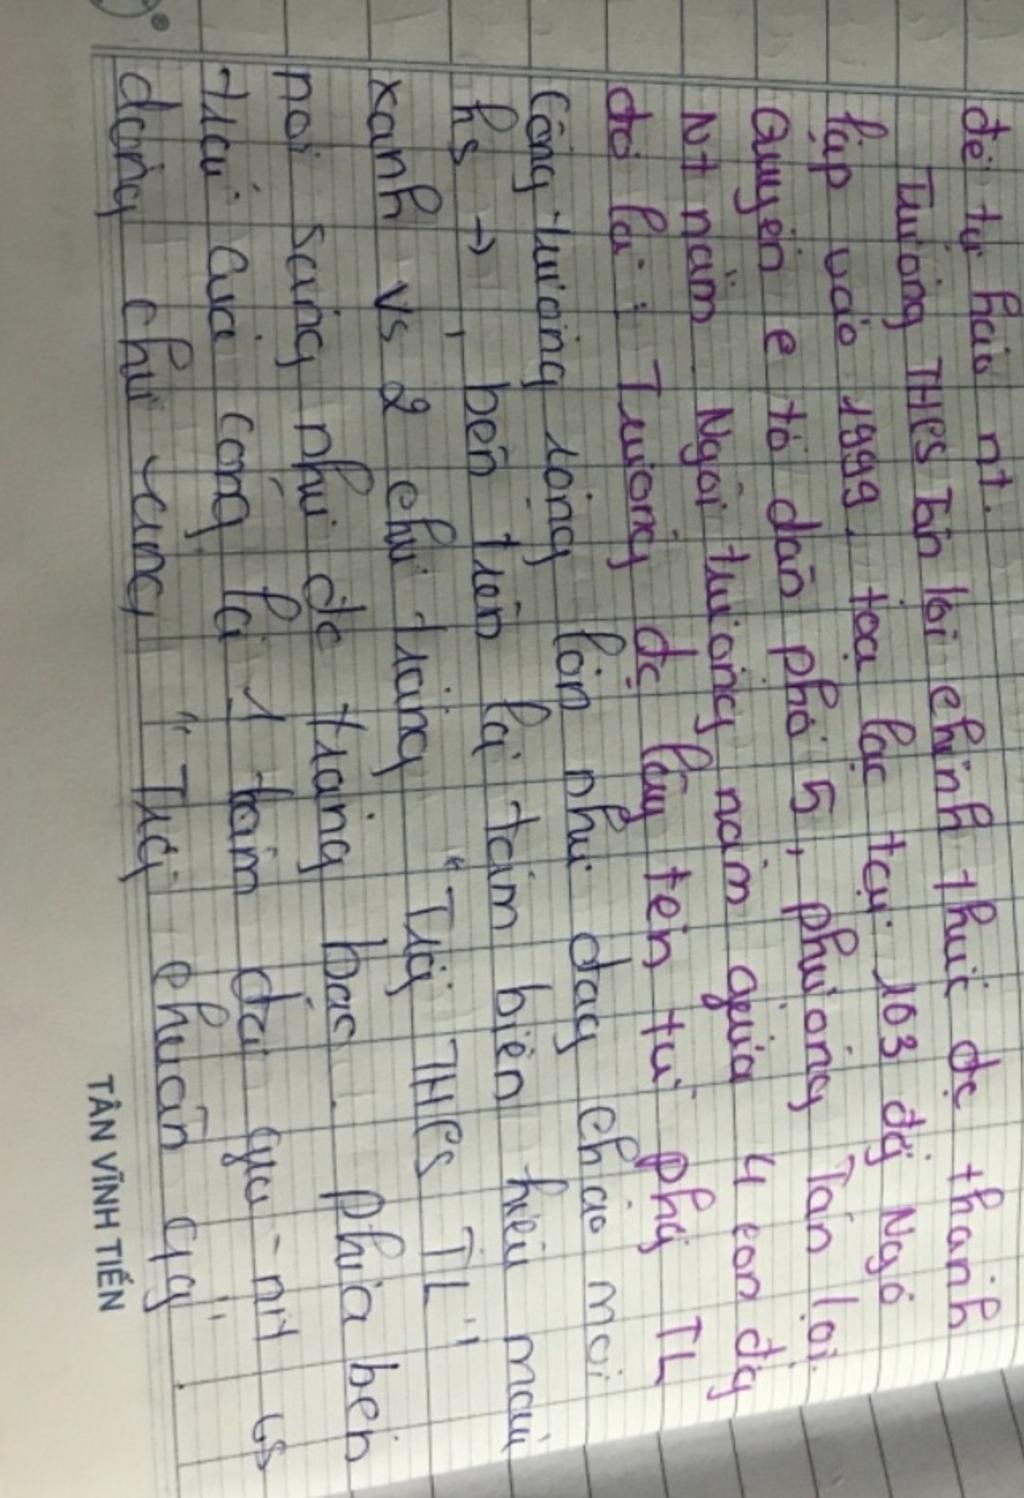 để tự hào nt.
Trường THCS Tân lợi chính thức đc thành
lập vào 1999, tọa lạc tại 103 đg Ngô
Quyền e tổ dân phố 5, phường Tân lợi.
Nt năm. Ngôi trường nằm giữa 4 con đg
đó là: Trường đc lấy tên từ phg TL
Cổng trường rộng lớn như dang chào mời
hs →, bên trên là tấm biển hiệu màu
xanh vs 2 chữ trắng "Trg THCS TL"
nổi sáng như đc tráng bạc. phía bên
trái của cổng là 1 tấm đá gra-nit có
dòng chữ vàng "Trg chuẩn qg"
TÂN VĨNH TIẾN
®